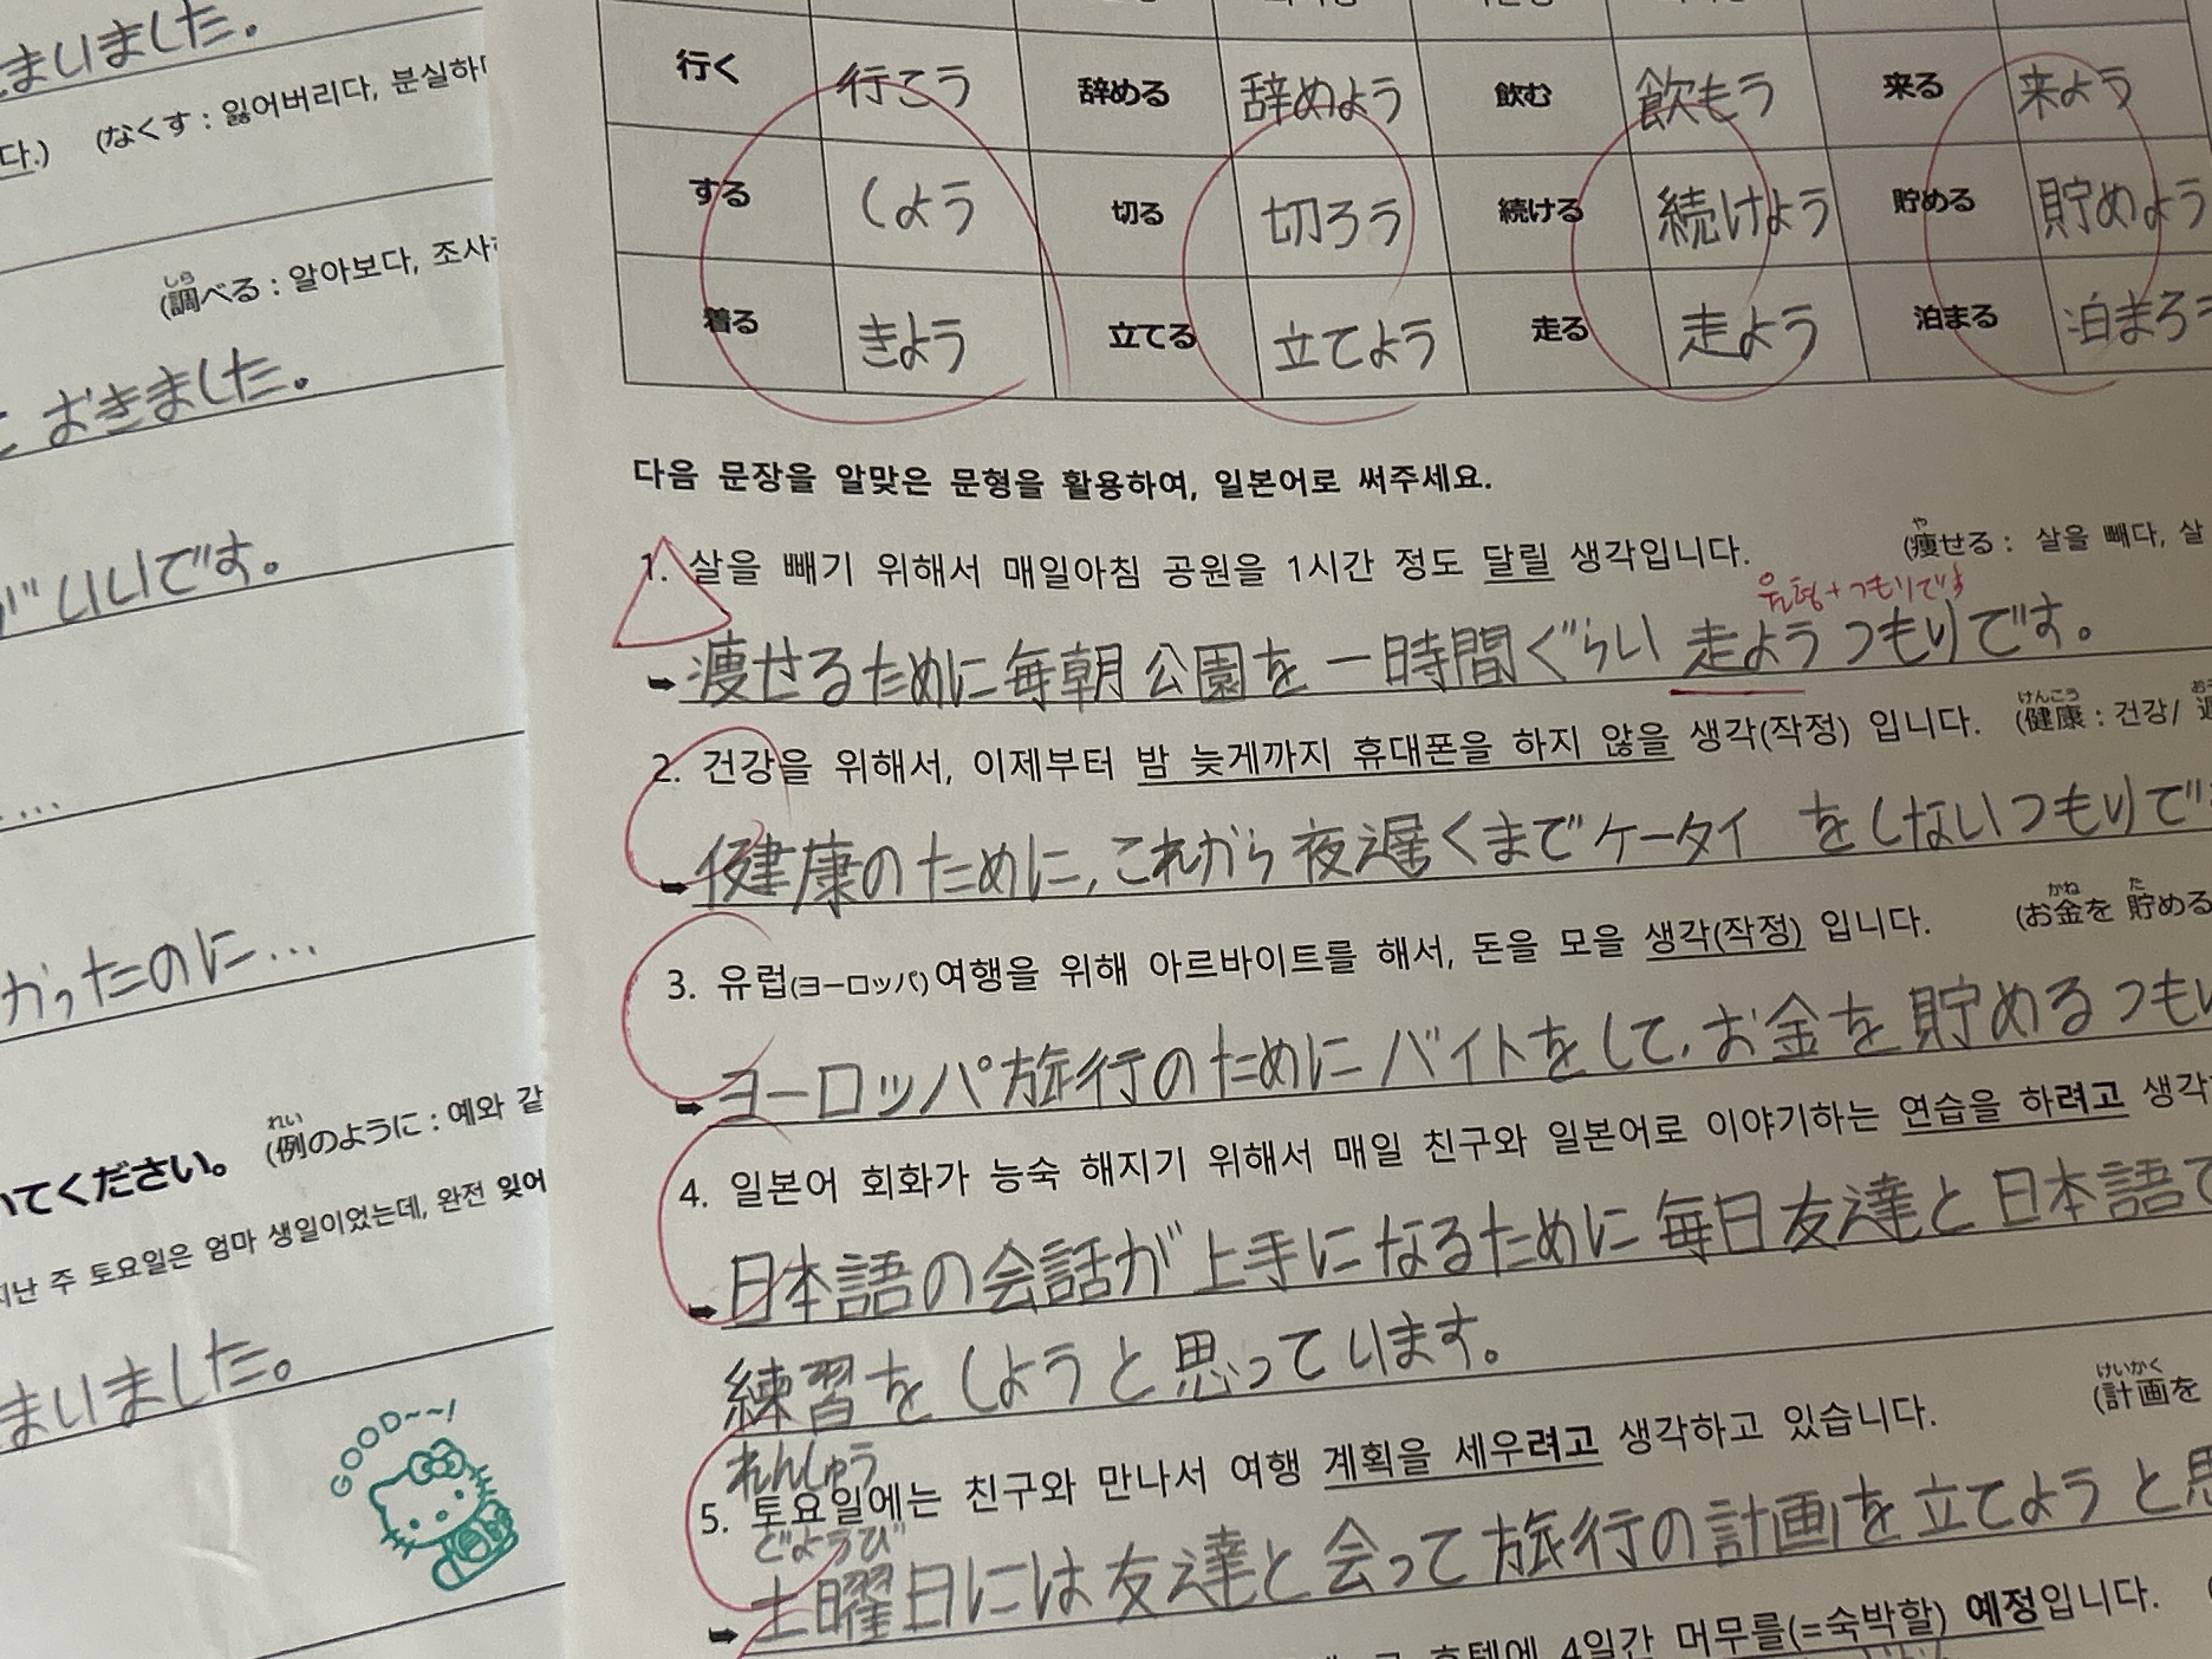 まいました。
다.) (なくす : 잃어버리다, 분실하
しら
(調べる : 알아보다, 조사
おきました。
がいいです。
...
かったのに...
れい
いてください。 (例のように : 예와 같
지난 주 토요일은 엄마 생일이었는데, 완전 잊어
まいました。
GOOD~~!
行く 行こう 辞める 辞めよう 飲む 飲もう 来る 来よう
する しよう 切る 切ろう 続ける 続けよう 貯める 貯めよう
着る きよう 立てる 立てよう 走る 走よう 泊まる 泊まろう
다음 문장을 알맞은 문형을 활용하여, 일본어로 써주세요.
や
1. 살을 빼기 위해서 매일아침 공원을 1시간 정도 달릴 생각입니다. (痩せる : 살을 빼다, 살
+つもりです
➡ 痩せるために毎朝公園を一時間ぐらい走ようつもりです。
けんこう
2. 건강을 위해서, 이제부터 밤 늦게까지 휴대폰을 하지 않을 생각(작정) 입니다. (健康 : 건강/
➡ 健康のために, これから夜遅くまでケータイをしないつもりで
かね た
3. 유럽(ヨーロッパ)여행을 위해 아르바이트를 해서, 돈을 모을 생각(작정) 입니다. (お金を 貯める
➡ ヨーロッパ旅行のためにバイトをして, お金を貯めるつも
4. 일본어 회화가 능숙 해지기 위해서 매일 친구와 일본어로 이야기하는 연습을 하려고 생각
➡ 日本語の会話が上手になるために毎日友達と日本語で
練習をしようと思っています。
れんしゅう
けいかく
5. 토요일에는 친구와 만나서 여행 계획을 세우려고 생각하고 있습니다. (計画を
どようび
➡ 土曜日には友達と会って旅行の計画を立てようと思
호텔에 4일간 머무를(=숙박할) 예정입니다.